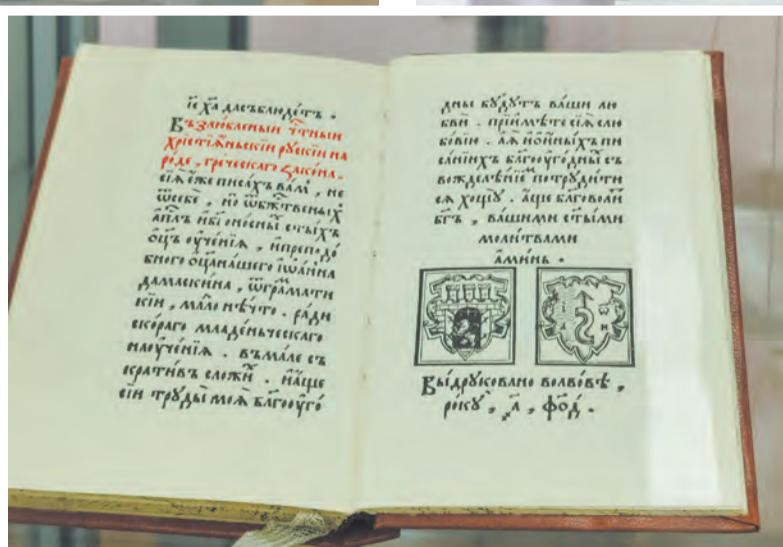 і҆е хⷭ҇а да съблюде́тъ .
Възлю́бленыи чⷭ҇тныи
хрⷭ҇тїа́ньскїи рꙋ́скїи на
ро́де , гре́ческаго зако́на .
сїѧ҄ е́же писа́хъ ва́мъ , не
ѿ себѐ , но̀ ѿ бжⷭ҇твеныⷯ
апⷭ҇лъ и҆ бг҃оно́сныⷯ ст҃ы́хъ
ѻ҆ц҃ъ ᲂу҆че́нїѧ , и҆ преподо́
бного ѻ҆ц҃а̀ на́шего і҆ѡа́нна
дамаски́на , ѿ грама́ти
кїи , ма́ло нѣ́что . ра́ди
ско́раго младе́ньческаго
наᲂуче́нїѧ . въма́ле съ
крати́въ сложи́ⷯ . и҆ а́ще
сїи трꙋды̀ моѧ̀ бл҃гоᲂуго́
дны бꙋ́дꙋтъ ва́ши лю
бви̂ . прїимѣ́те сїѧ̀ слю
бо́вїю . а а҆́зъ и҆ ѡ҆ и҆ны́хъ пи
са́нїихъ бл҃гоᲂуго́дныⷯ съ
вожделѣ́нїеⷨ потрꙋди́ти
сѧ хощꙋ̀ . а҆́ще бл҃говоли́ⷮ
бг҃ъ , ва́шими ст҃ы́ми
моли́твами
а҆ми́нь .
І Ѡ
А Н
Вы́дрꙋковано во львовѣ ,
ро́кꙋ , ҂а҃ , фо҃д .